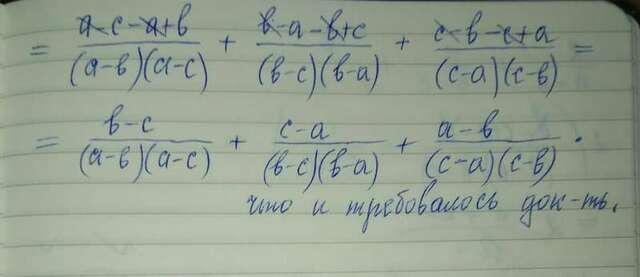 = (a-c-a+b)/((a-b)(a-c)) + (b-a-b+c)/((b-c)(b-a)) + (c-b-c+a)/((c-a)(c-b)) =
= (b-c)/((a-b)(a-c)) + (c-a)/((b-c)(b-a)) + (a-b)/((c-a)(c-b)).
что и требовалось док-ть.